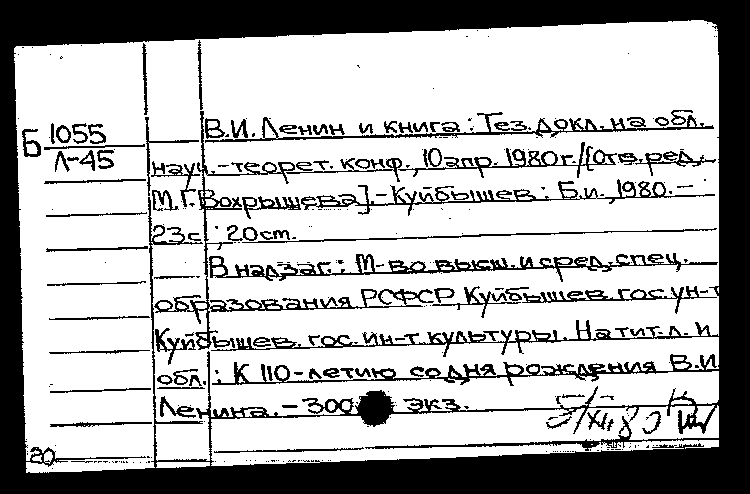 Б 1055
Л-45
В.И. Ленин и книга: Тез. докл. на обл.
науч.-теорет. конф., 10 апр. 1980 г. / [Отв. ред.
М.Г. Вохрышева]. - Куйбышев: Б.и., 1980. -
23 с.; 20 см.
В надзаг.: М-во высш. и сред. спец.
образования РСФСР, Куйбышев. гос. ун-т
Куйбышев. гос. ин-т культуры. На тит. л. и
обл.: К 110-летию со дня рождения В.И
Ленина. - 300 экз.
20